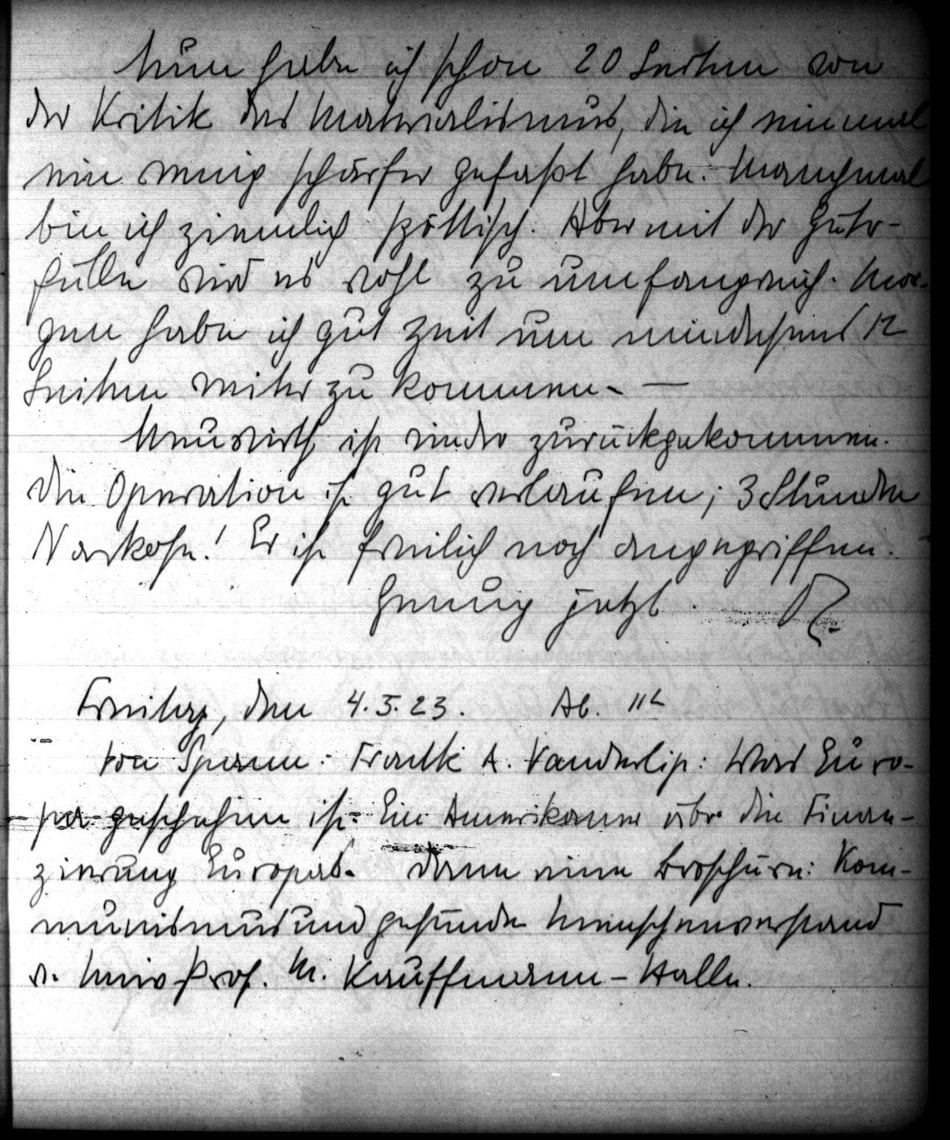 Nun habe ich schon 20 Seiten von
der Kritik des Materialismus, die ich nun mal
ein wenig schärfer gefaßt habe. Manchmal
bin ich ziemlich spöttisch. Aber mit der
fülle wird es wohl zu umfangreich. Mor-
gen habe ich gut Zeit um mindestens 12
Seiten weiter zu kommen. —
Neuwirth ist wieder zurückgekommen.
Die Operation ist gut verlaufen; 3 Stunden
Narkose! Er ist freilich noch angegriffen.
Genug jetzt. R.
Freitag, den 4.5.23. Ab. 11
Von Spann: Frank A. Vanderlip: Was Euro-
pa geschehen ist. Ein Amerikaner über die Finan-
zierung Europas. Dann eine Broschüre: Kom-
munismus und gesunder Menschenverstand
v. Univ. Prof. M. Kauffmann - Halle.